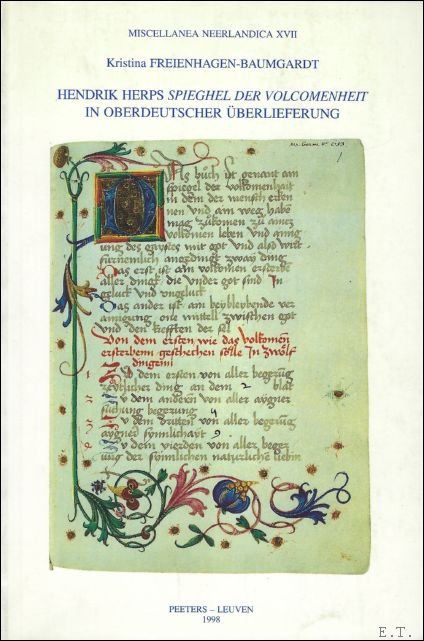 MISCELLANEA NEERLANDICA XVII
Kristina FREIENHAGEN-BAUMGARDT
HENDRIK HERPS SPIEGHEL DER VOLCOMENHEIT
IN OBERDEUTSCHER ÜBERLIEFERUNG
Ms. Germ. 4° 1
Das buch ist genant am
spiegel der volkomenhait
in dem der mensch erken
nen und am weg habe
mag zukomen zu ainez
volkomen leben und ainig
ung des gaystes mit got und also wirt
fürnemlich angedingkt zway ding
Das erst ist am volkomen ersterbe
aller dingk die under got sind In
geluck und ungeluck
Das ander ist am beybleybende ver
ainigung one mittell zwischen got
und den krefften der sel
Von dem ersten wie das volkomen
ersterbenn geschechen sölle In zwölf
dingenn
dem ersten von aller begerüg
zeytlicher ding an dem 2 blat
dem anderen von aller aygner
suchung begerung 4
dem dritten von aller begerüg
aygner synnlichayt 9
dem vierden von aller beger
ung der synnlichen naturlichen liebin
PEETERS – LEUVEN
1998
E.T.